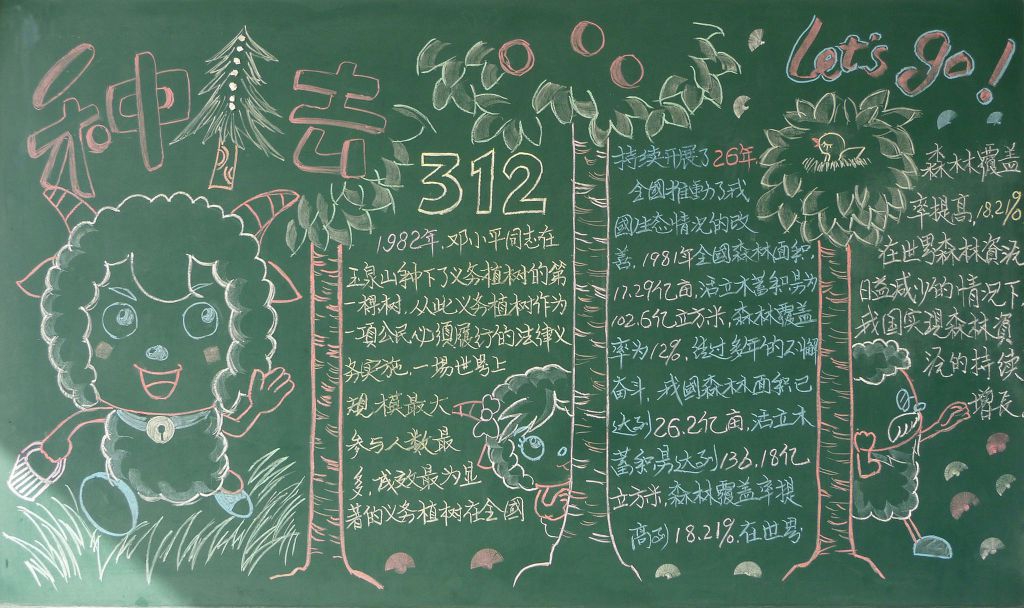 种 去
Let's go!
312
1982年,邓小平同志在
玉泉山种下了义务植树的第
一棵树,从此义务植树作为
一項公民必须履行的法律义
务实施,一場世界上
規模最大
参与人数最
多,成效最为显
著的义务植树在全國
持续开展了26年,
全國推動了我
國生态情况的改
善,1981年全国森林面积,
17.29亿亩,活立木蓄积男为
102.6亿立方米,森林覆盖
率为12%,经过多年的不懈
奋斗,我國森林面积已
达到26.2亿亩,活立木
蓄积男达到136.18亿
立方米,森林覆盖率提
高到18.21%.在世界
森林覆盖
率提高,18.21%
在世界森林資沅
日益减少的情况下,
我国实現森林資
沅的持续
增长.